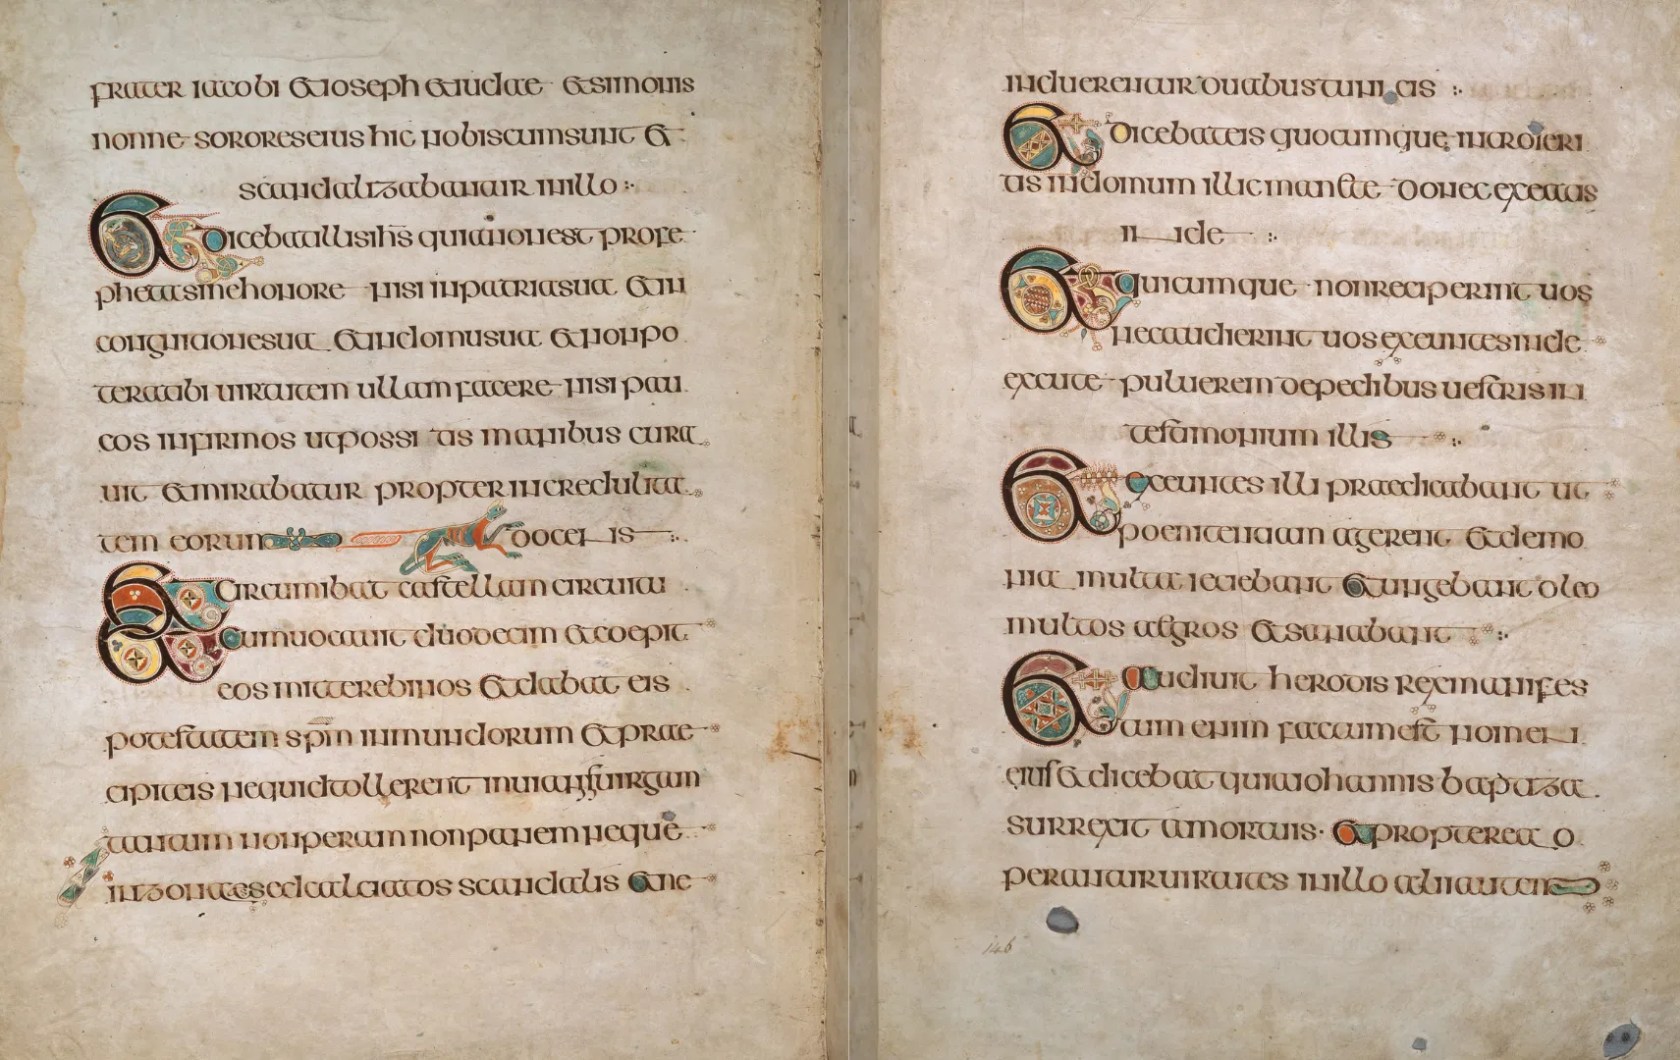 frater iacobi et ioseph et iudae et simonis
nonne sorores eius hic nobiscum sunt et
scandalizabantur in illo
Et dicebat illis ihs quia non est profe
pheta sine honore nisi in patria sua et in
cognatione sua et in domu sua et non po
terat ibi uirtutem ullam facere nisi pau
cos infirmos ut possi tis manibus cura
uit et mirabatur propter incredulita
tem eorum docens
Et circumibat castellam circuitu
Et cum uocauit duodecim et coepit
eos mittere binos et dabat eis
potestatem spm inmundorum et prae
cipit eis nequid tollerent in uia nisi uirgam
tantum non peram non panem neque
in zona aes sed calciatos scandalis et ne
induerentur duabus tunicis
Et dicebat eis quocumque introieri
tis in domum illic manete donec exeatis
inde
Et quicumque non reciperint uos
nec audierint uos exeuntes inde
excute puluerem de pedibus uestris in
testimonium illis
Et exeuntes illi praedicabant ut
poenitentiam agerent et demo
nia multa ieciebant et ungebant oleo
multos aegros et sanabant
Et audiuit herodis rex manifes
tum enim factum est nomen
eius et dicebat quia iohannis baptiza
surrexit a mortuis et propterea o
perantur uirtutes in illo alii autem
146